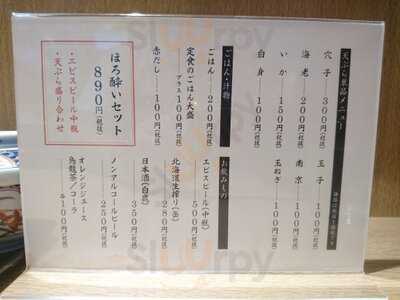 天ぷら単品メニュー
穴子 300円(税抜)
海老 200円(税抜)
いか 150円(税抜)
白身 100円(税抜)
玉子 100円(税抜)
南京 100円(税抜)
玉ねぎ 100円(税抜)
ごはん・汁物
ごはん 200円(税抜)
定食のごはん大盛
プラス100円(税抜)
赤だし 100円(税抜)
お飲みもの
ヱビスビール(中瓶)
500円(税抜)
北海道生搾り(缶)
280円(税抜)
日本酒(白鹿)
350円(税抜)
ノンアルコールビール
250円(税抜)
オレンジジュース
烏龍茶/コーラ
各100円(税抜)
ほろ酔いセット
890円(税抜)
・ヱビスビール中瓶
・天ぷら盛り合わせ
sluurpy